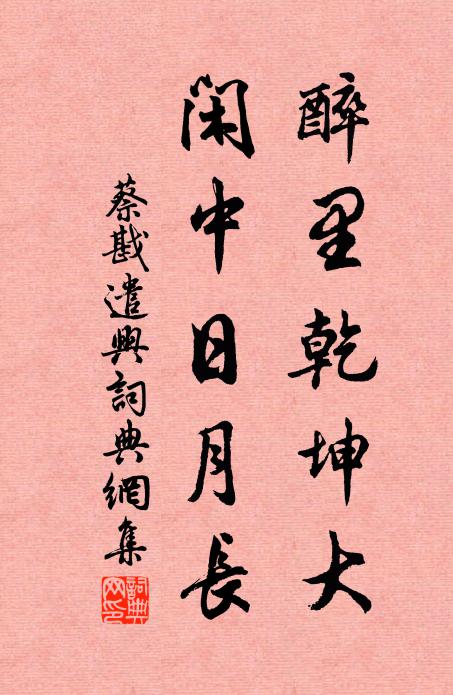 醉里乾坤大
闲中日月長
蔡戡遣興詞典網集
詞典網印